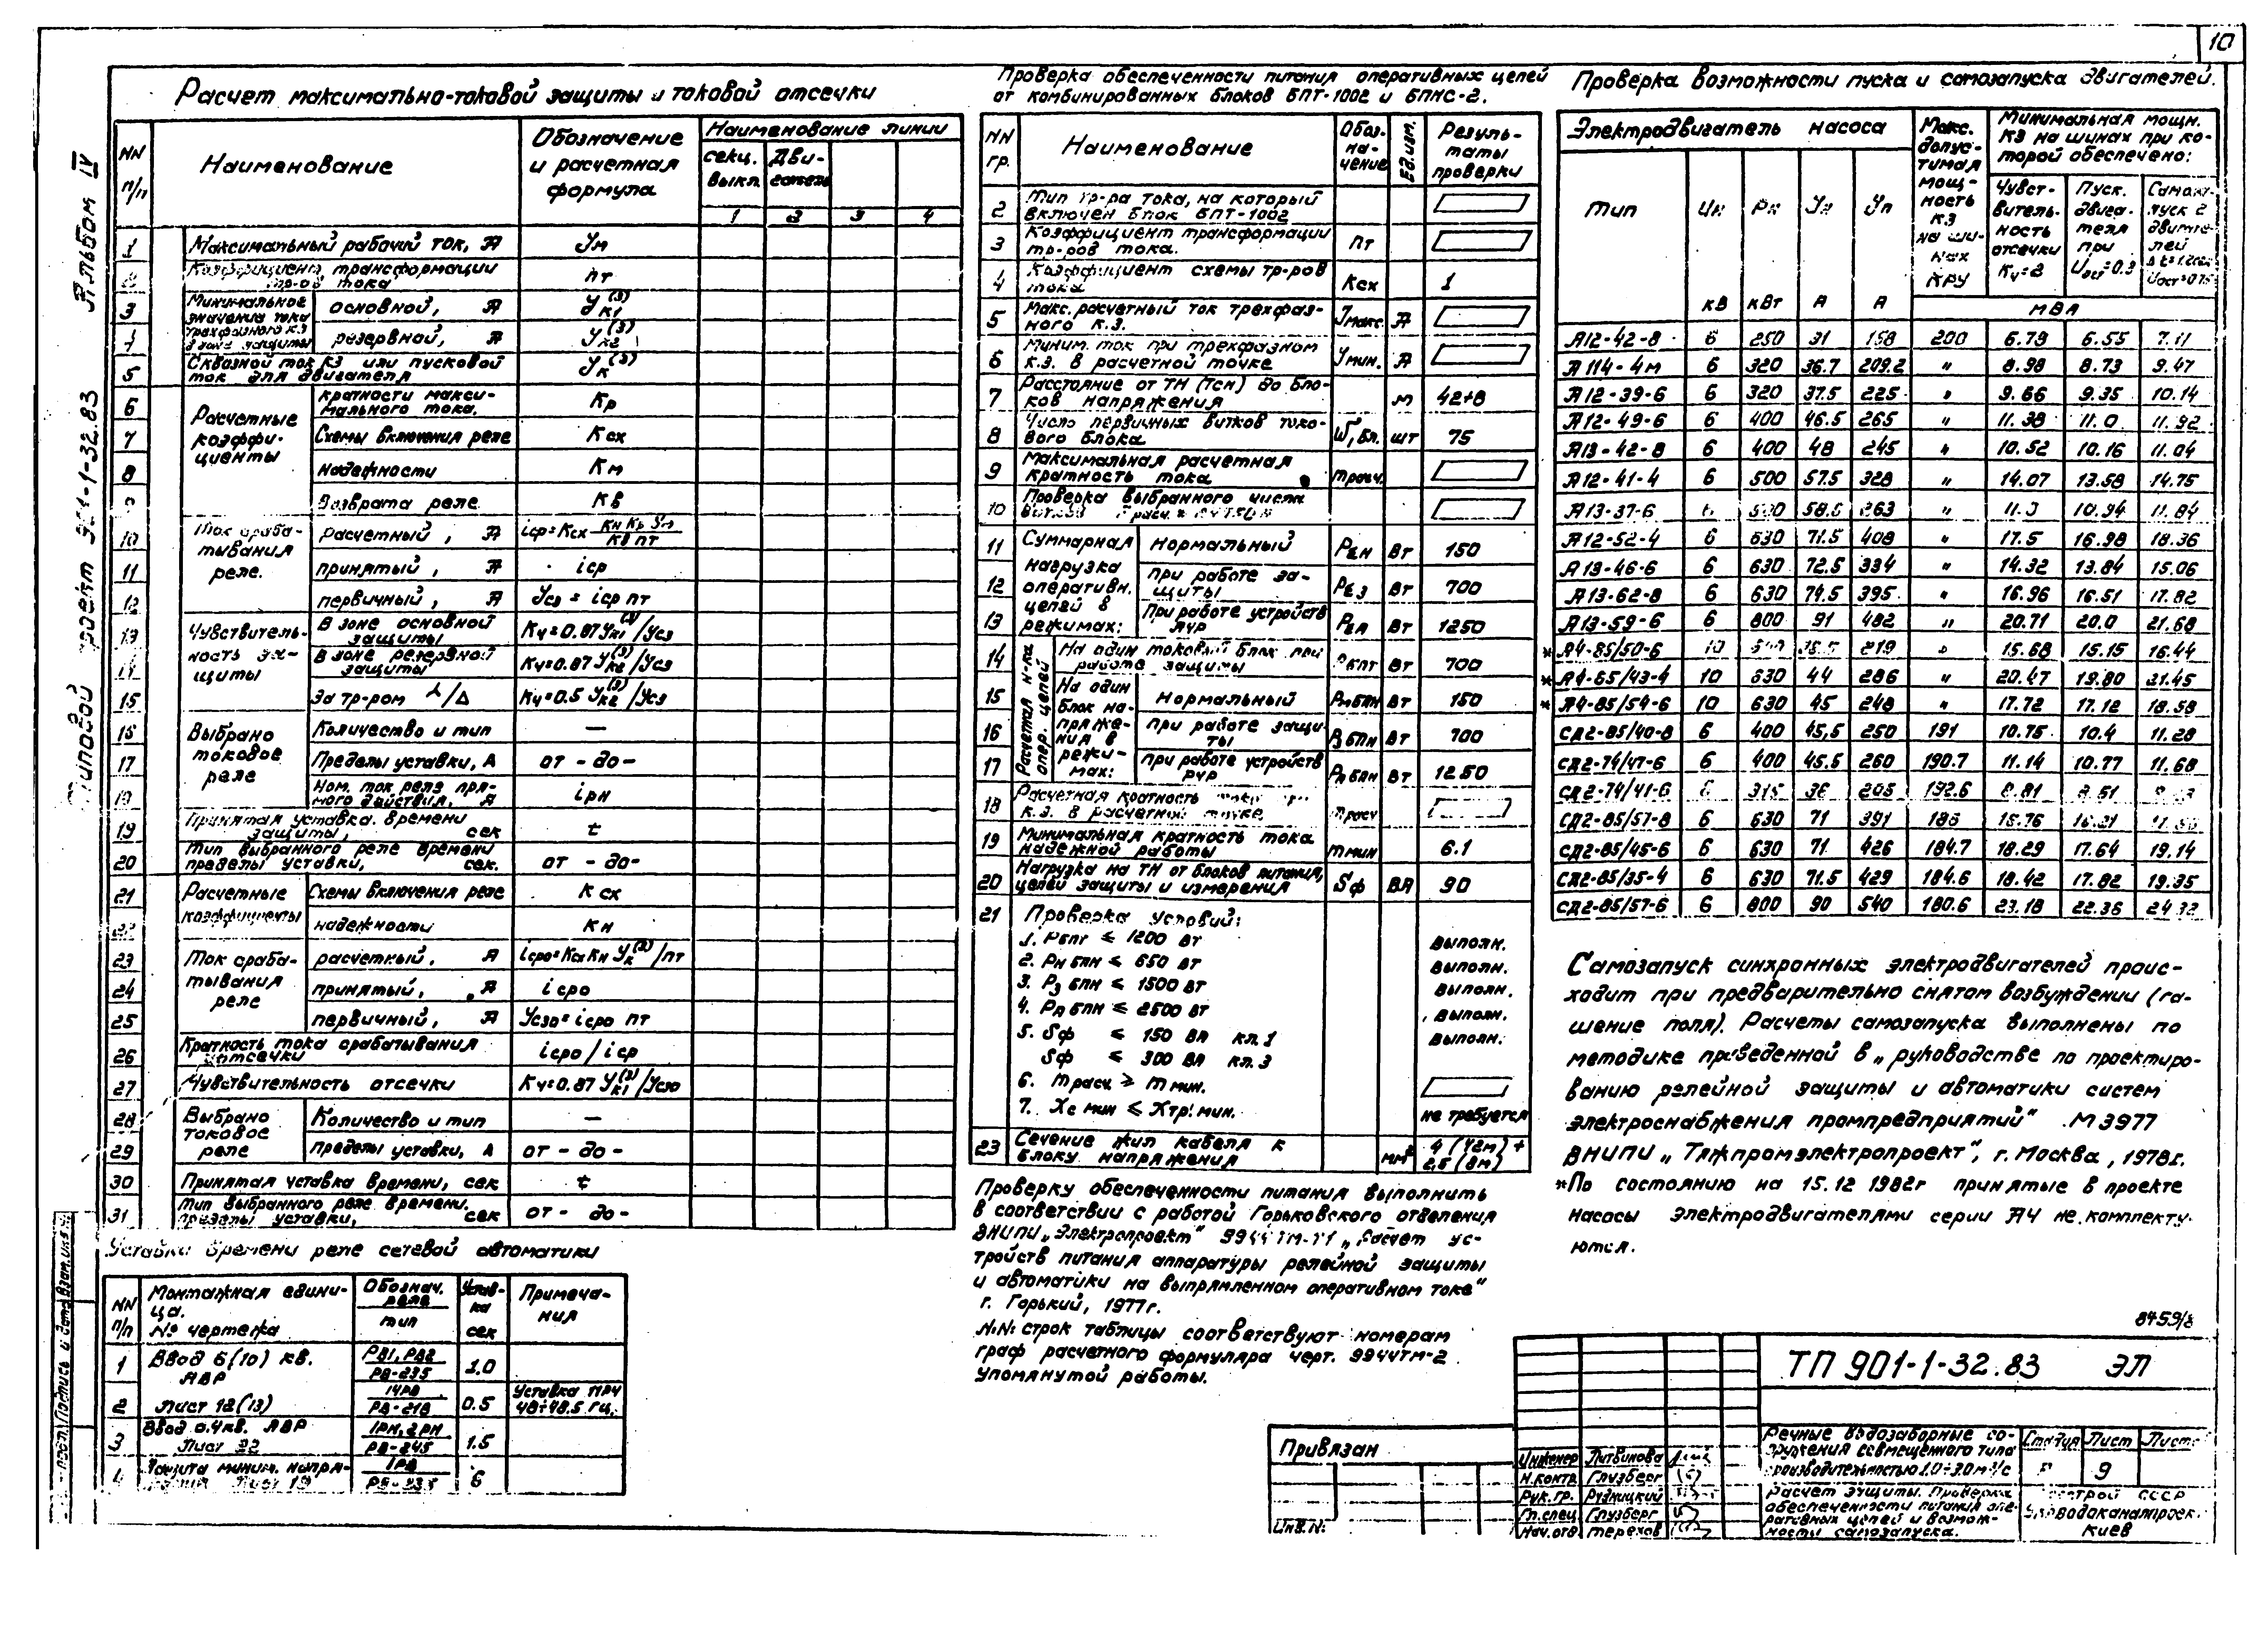 10
Альбом IV
Типовой проект 901-1-32.83
Расчет максимально-токовой защиты и токовой отсечки
NN п/п
Наименование
Обозначение и расчетная формула
Наименование линии
секц. выкл.
Двигатель
1 2 3 4
1 Максимальный рабочий ток, А Ум
2 Коэффициент трансформации тр-ов тока nт
Минимальное значение тока трехфазного к.з. в зоне защиты
3 основной, А У(3)к1
4 резервной, А У(3)к2
5 Сквозной ток КЗ или пусковой ток для двигателя У(3)к
Расчетные коэффициенты
6 кратности максимального тока. Кр
7 Схемы включения реле Ксх
8 надежности Км
9 Возврата реле Кв
Ток срабатывания реле.
10 расчетный, А iср=Ксх
11 принятый, А iср
12 первичный, А Усз = iср nт
Чувствительность защиты
13 В зоне основной защиты Кч=0.87У(3)к1/Усз
14 В зоне резервной защиты Кч=0.87У(3)к2/Усз
15 За тр-ром ⅄/Δ Кч=0.5У(3)к2/Усз
Выбрано токовое реле
16 Количество и тип —
17 Пределы уставки, А от - до-
18 Ном. ток реле прямого действия, А iрн
19 Принятая уставка времени защиты, сек t
20 Тип выбранного реле времени пределы уставки, сек. от - до-
Расчетные коэффициенты
21 Схемы включения реле Ксх
22 надежности Кн
Ток срабатывания реле
23 расчетный, А iсро=Ксх Кн У(3)к/nт
24 принятый, А iсро
25 первичный, А Усзо=iсро nт
26 Кратность тока срабатывания отсечки iсро/iср
27 Чувствительность отсечки Кч=0.87У(3)к1/Усзо
Выбрано токовое реле
28 Количество и тип —
29 пределы уставки, А от - до-
30 Принятая уставка времени, сек t
31 Тип выбранного реле времени, пределы уставки, сек от - до-
Уставки времени реле сетевой автоматики
NN п/п
Монтажная единица. № чертежа
Обознач. реле тип
Уставка сек
Примечания
1 Ввод 6(10) кв. АВР РВ1, РВ2 РВ-235 1.0
2 Лист 12(13) 14РВ РВ-218 0.5 Уставка МРЧ 48÷48.5 Гц.
3 Ввод 0.4кв. АВР Лист 22 1РН, 2РН РВ-245 1.5
4 Защита миним. напря- Лист 19 1РВ РВ-235 6
Проверка обеспеченности питания оперативных цепей
от комбинированных блоков БПТ-1002 и БПНС-2.
NN гр.
Наименование
Обозначение
Ед. изм.
Результаты проверки
2 Тип тр-ра тока, на который включен блок БПТ-1002
3 Коэффициент трансформации тр-ров тока. nт
4 Коэффициент схемы тр-ров тока Ксх 1
5 Макс. расчетный ток трехфазного к.з. Умакс. А
6 Миним. ток при трехфазном к.з. в расчетной точке Умин. А
7 Расстояние от ТН (ТСН) до блоков напряжения м 42+8
8 Число первичных витков токового блока W1бл. шт 75
9 Максимальная расчетная кратность тока mрасч.
10 Проверка выбранного числа витков
Суммарная нагрузка оперативн. цепей в режимах:
11 нормальный РΣн Вт 150
12 при работе защиты РΣз Вт 700
13 При работе устройств АЧР РΣА Вт 1250
Расчетная н-ка опер. цепей
14 На один токовый блок при работе защиты Рбпт Вт 700
На один блок напряжения в режимах:
15 нормальный Рнбпн Вт 150
16 при работе защиты Рзбпн Вт 700
17 при работе устройств РЧР РАбпн Вт 1250
18 Расчетная кратность тока при к.з. в расчетной точке mрасч
19 Минимальная кратность тока надежной работы mмин 6.1
20 Нагрузка на ТН от блоков питания, цепей защиты и измерения Sф ВА 90
21 Проверка условий:
1. Рбпт ≤ 1200 вт выполн.
2. Рн бпн ≤ 650 вт выполн.
3. Рз бпн ≤ 1500 вт выполн.
4. РА бпн ≤ 2500 вт выполн.
5. Sф ≤ 150 ВА кл.1 выполн.
Sф ≤ 300 ВА кл.3
6. mрасч ≥ mмин.
7. Хс мин ≤ Хтр. мин. не требуется
23 Сечение жил кабеля к блоку напряжения мм² 4 (42м) + 2,5 (8м)
Проверку обеспеченности питания выполнить
в соответствии с работой Горьковского отделения
ВНИПИ „Электропроект" 9944ТМ-Т1 „Расчет ус-
тройств питания аппаратуры релейной защиты
и автоматики на выпрямленном оперативном токе"
г. Горький, 1977г.
N:N: строк таблицы соответствуют номерам
граф расчетного формуляра черт. 9944ТМ-2
упомянутой работы.
Проверка возможности пуска и самозапуска двигателей.
Электродвигатель насоса
Макс. допустимая мощность к.з на шинах КРУ
Минимальная мощн. КЗ на шинах при которой обеспечено:
Тип Uн Рн Ун Уп
Чувствительность отсечки Кч=2
Пуск. двигателя при Uост=0.3
Самозапуск 2 двигателей
кв квт А А МВА
А12-42-8 6 250 31 158 200 6.79 6.55 7.11
А114-4м 6 320 36.7 209.2 " 8.98 8.73 9.47
А12-39-6 6 320 37.5 225 " 9.66 9.35 10.14
А12-49-6 6 400 46.5 265 " 11.38 11.0 11.92
А13-42-8 6 400 48 245 " 10.52 10.16 11.04
А12-41-4 6 500 57.5 328 " 14.07 13.58 14.75
А13-37-6 6 500 58.5 263 " 11.3 10.94 11.84
А12-52-4 6 630 71.5 408 " 17.5 16.98 18.36
А13-46-6 6 630 72.5 334 " 14.32 13.84 15.06
А13-62-8 6 630 74.5 395 " 16.96 16.51 17.82
А13-59-6 6 800 91 482 " 20.71 20.0 21.68
* А4-85/50-6 10 219 " 15.68 15.15 16.44
* А4-85/43-4 10 630 44 286 " 20.47 19.80 21.45
* А4-85/54-6 10 630 45 248 " 17.72 17.12 18.58
СД2-85/40-8 6 400 45,5 250 191 10.75 10.4 11.28
СД2-74/47-6 6 400 45.5 260 190.7 11.14 10.77 11.68
СД2-74/41-6 6 315 36 205 192.6 8.81 8.51
СД2-85/57-8 6 630 71 391 186
СД2-85/45-6 6 630 71 426 184.7 18.29 17.64 19.14
СД2-85/35-4 6 630 71.5 429 184.6 18.42 17.82 19.35
СД2-85/57-6 6 800 90 540 180.6 23.18 22.36 24.32
Самозапуск синхронных электродвигателей проис-
ходит при предварительно снятом возбуждении (га-
шение поля). Расчеты самозапуска выполнены по
методике приведенной в „руководстве по проектиро-
ванию релейной защиты и автоматики систем
электроснабжения промпредприятий" М3977
ВНИПИ „Тяжпромэлектропроект", г. Москва, 1978г.
*По состоянию на 15.12 1982г принятые в проекте
насосы электродвигателями серии А4 не комплекту-
ются.
8459/8
ТП 901-1-32.83 ЭЛ
Привязан
Инв. N:
Инженер Литвинова
Н.контр. Глузберг
Рук.гр. Рудницкий
Гл.спец. Глузберг
Нач.отд. Терехов
Речные водозаборные со-
оружения совмещенного типа
производительностью 1.0÷3.0 м³/с
Стадия Лист Листов
Р 9
Расчет защиты. Проверка
обеспеченности питания опе-
ративных цепей и возмож-
ности самозапуска.
Госстрой СССР
Укрводоканалпроект
Киев
Подпись и дата Взам. инв.